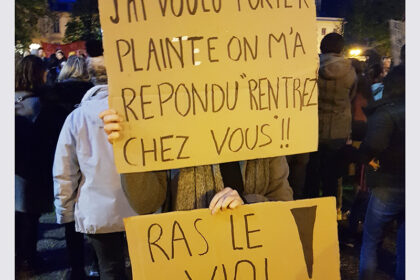 J'AI VOULU PORTER
PLAINTE ON M'A
REPONDU "RENTREZ
CHEZ VOUS" !!
RAS LE
VIOL !